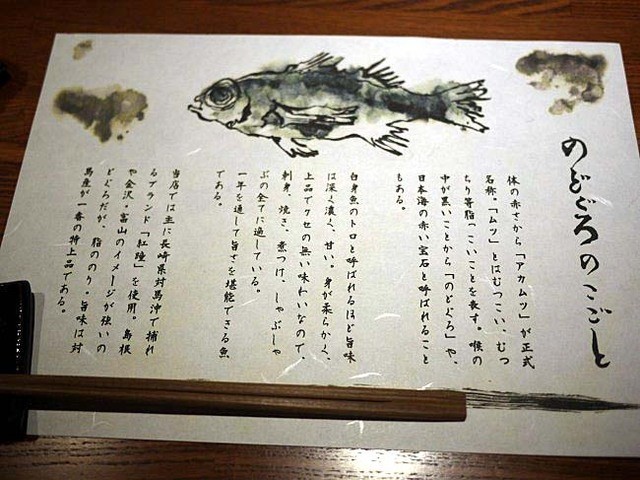 のどぐろのこごと
体の赤さから「アカムツ」が正式
名称。「ムツ」とはむつこい、むつ
ちり等脂っこいことを表す。喉の
中が黒いことから「のどぐろ」や、
日本海の赤い宝石と呼ばれること
もある。
白身魚のトロと呼ばれるほど旨味
は深く濃く、甘い。身が柔らかく、
上品でクセの無い味わいなので
刺身、焼き、煮つけ、しゃぶしゃ
ぶの全てに適している。
一年を通して旨さを堪能できる魚
である。
当店では主に長崎県対馬沖で捕れ
るブランド「紅瞳」を使用。島根
や金沢・富山のイメージが強いの
どぐろだが、脂ののり・旨味は対
馬産が一番の特上品である。